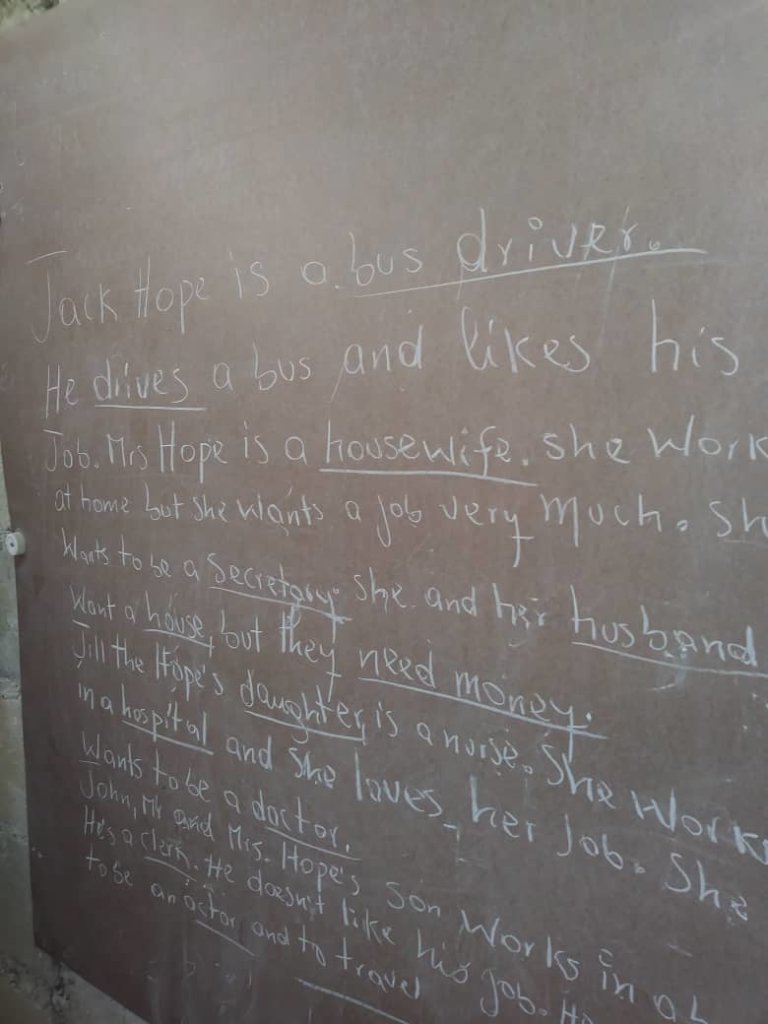 Jack Hope is a bus driver.
He drives a bus and likes his
Job. Mrs Hope is a housewife. she work
at home but she wants a job very much. Sh
Wants to be a Secretary. she and her husband
Want a house, but they need money.
Jill the Hope's daughter, is a nurse. She works
in a hospital and she loves her job. She
Wants to be a doctor.
John, Mr and Mrs. Hope's son works in a b
He's a clerk. He doesn't like his job. He
to be an actor and to travel